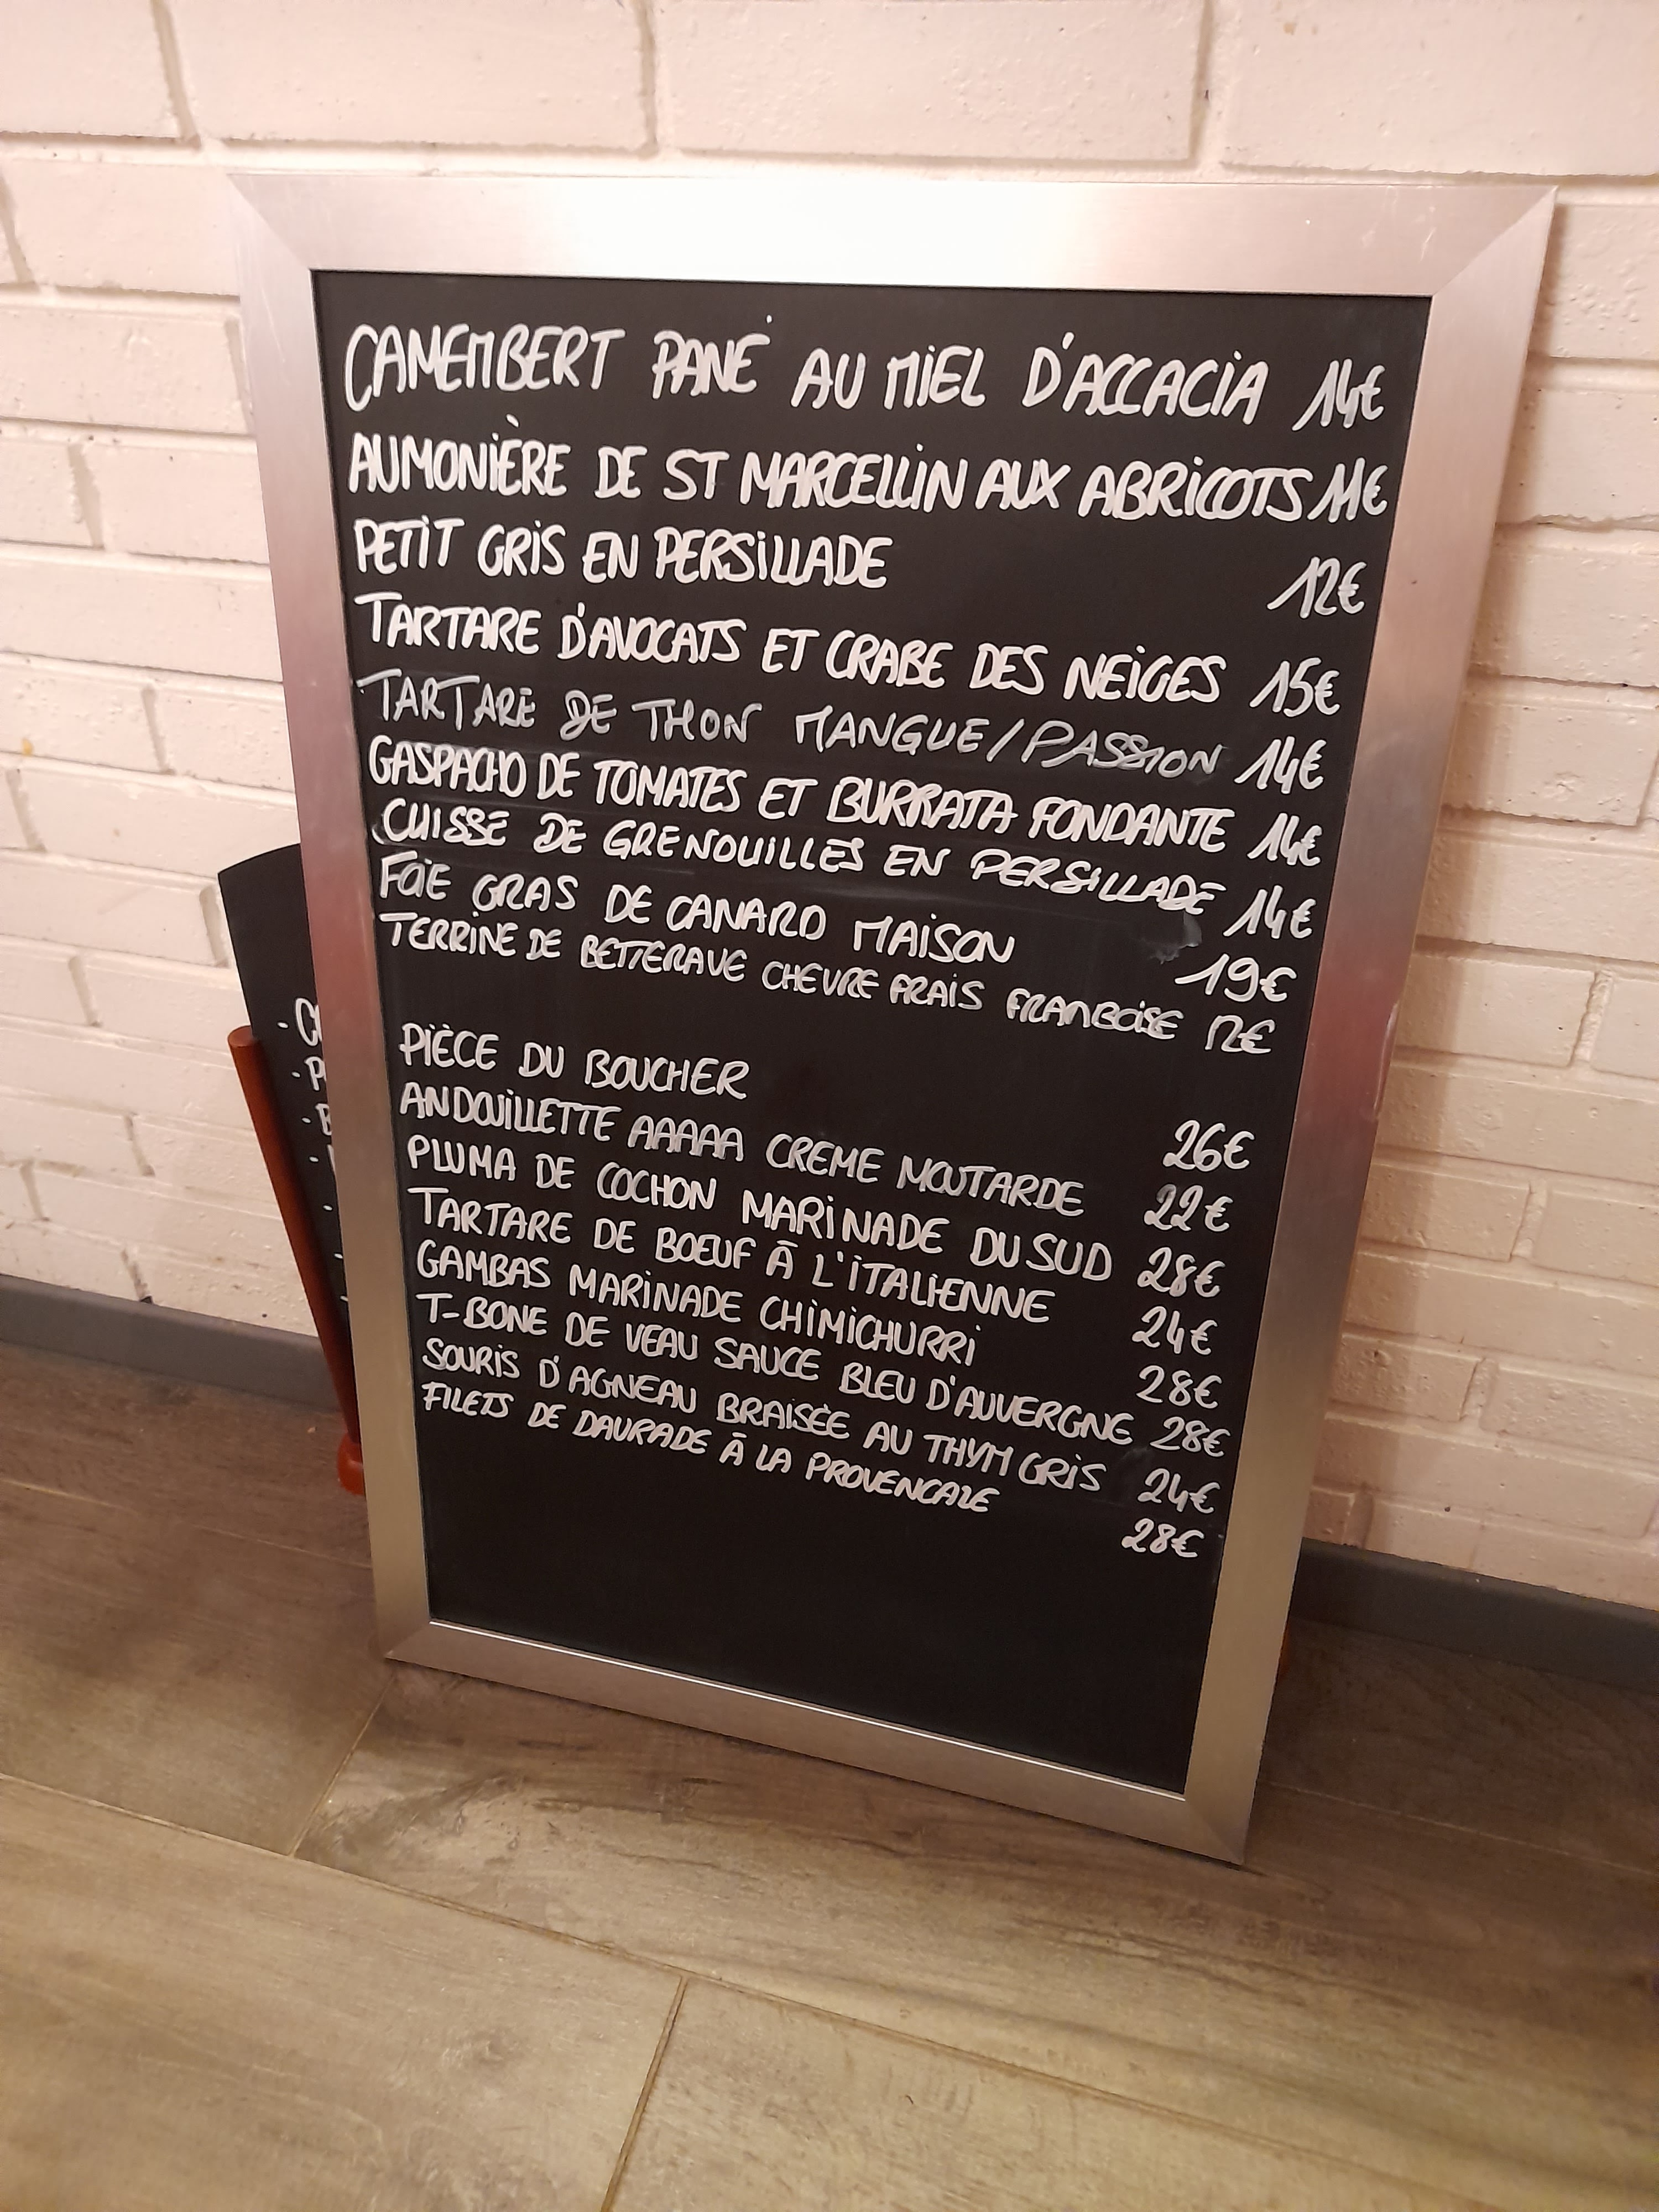 CAMEMBERT PANÉ AU MIEL D'ACCACIA 14€
AUMONIÈRE DE ST MARCELLIN AUX ABRICOTS 11€
PETIT GRIS EN PERSILLADE 12€
TARTARE D'AVOCATS ET CRABE DES NEIGES 15€
TARTARE DE THON MANGUE/PASSION 14€
GASPACHO DE TOMATES ET BURRATA FONDANTE 14€
CUISSE DE GRENOUILLES EN PERSILLADE 14€
FOIE GRAS DE CANARD MAISON 19€
TERRINE DE BETTERAVE CHEVRE FRAIS FRAMBOISE 12€
PIÈCE DU BOUCHER 26€
ANDOUILLETTE AAAAA CREME MOUTARDE 22€
PLUMA DE COCHON MARINADE DU SUD 28€
TARTARE DE BOEUF À L'ITALIENNE 24€
GAMBAS MARINADE CHIMICHURRI 28€
T-BONE DE VEAU SAUCE BLEU D'AUVERGNE 28€
SOURIS D'AGNEAU BRAISÉE AU THYM GRIS 24€
FILETS DE DAURADE À LA PROVENCALE 28€